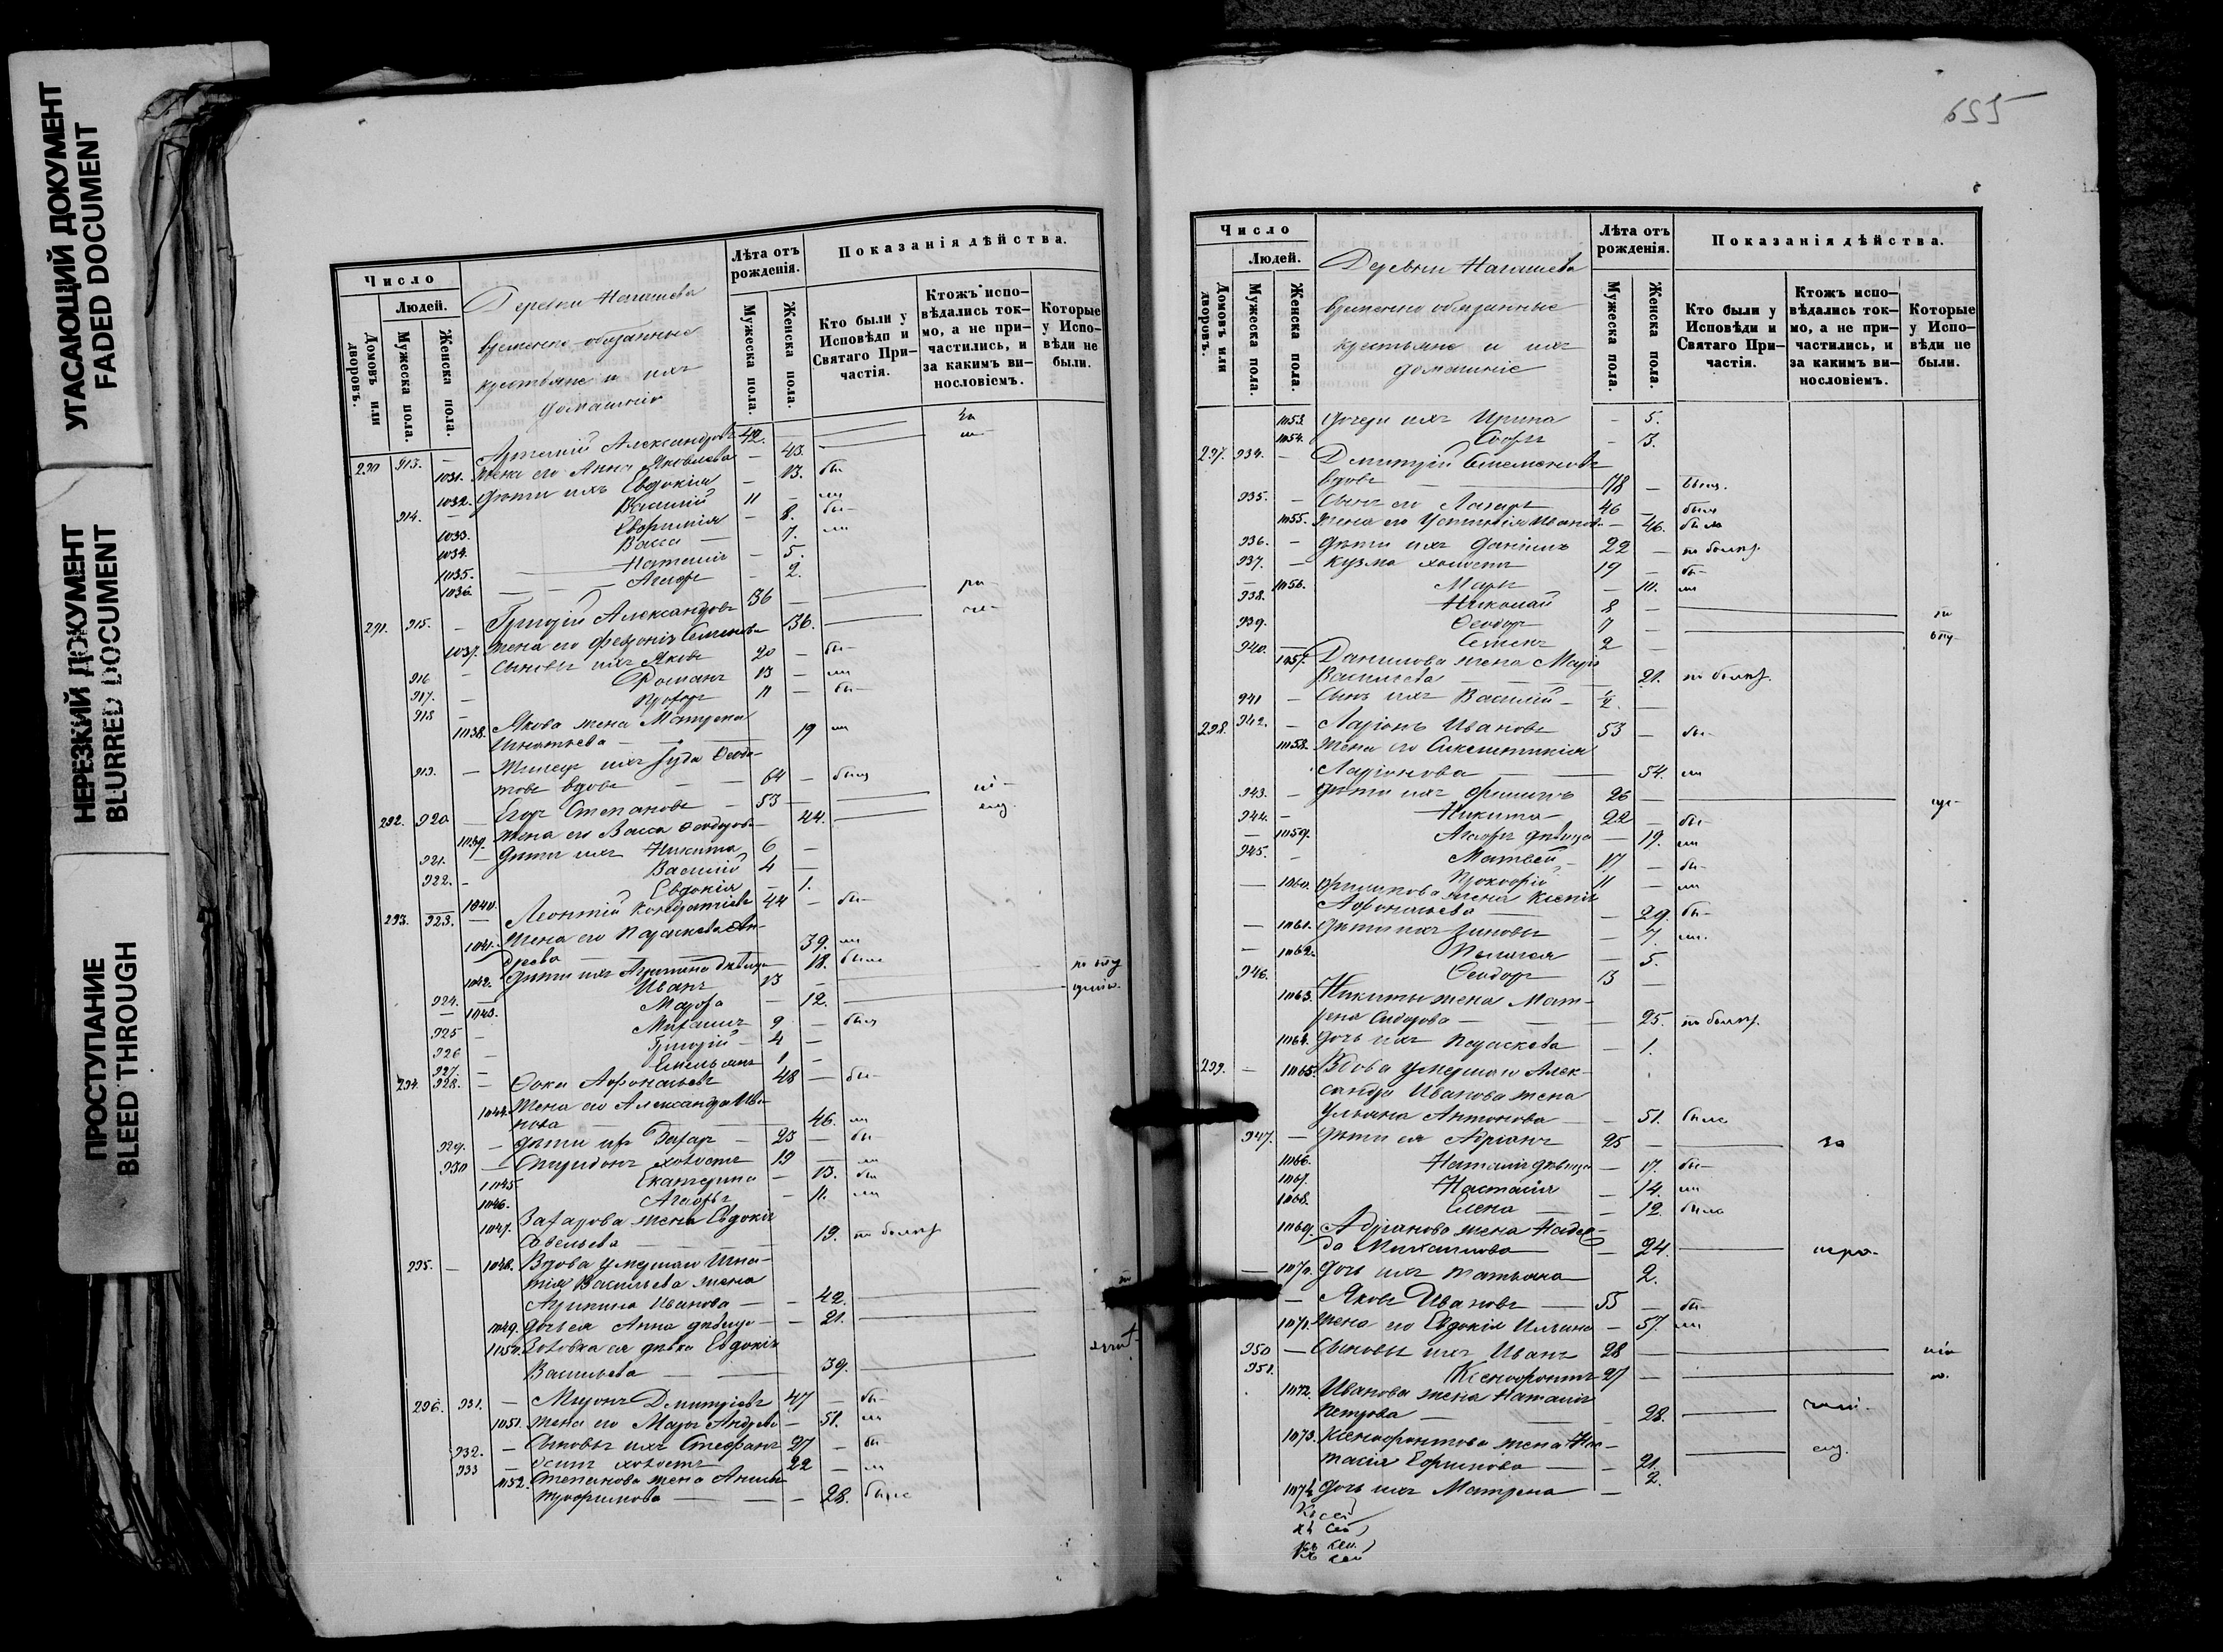 УГАСАЮЩИЙ ДОКУМЕНТ
FADED DOCUMENT
НЕРЕЗКИЙ ДОКУМЕНТ
BLURRED DOCUMENT
ПРОСТУПАНИЕ
BLEED THROUGH
Число
Людей.
Домовъ или дворовъ.
Мужеска пола.
Женска пола.
Деревни
временно-обязанные
крестьяне и ихъ
домашніе
Лѣта отъ рожденія.
Мужеска пола.
Женска пола.
Показанія дѣйства.
Кто были у Исповѣди и Святаго При-частія.
Ктожъ испо-вѣдались ток-мо, а не при-частились, и за какимъ ви-нословіемъ.
Которые у Испо-вѣди не были.
290 913. — Артемій Александровъ 42.
1031. Жена его Анна Яковлева — 43.
1032. Дѣти ихъ Евдокія — 13. бы-
914. — Василій 11 — ли
1033. Евфимія — 8. бы-
1034. Васса — 7. ли
1035. Наталія — 5.
1036. Агафія — 2.
291. 915. — Григорій Александровъ 36
1037. Жена его Семенова 36.
916 — Сыновья ихъ Яковъ 20 — бы-
917. — Романъ 13 — ли
918 — 11 — бы-
1038. Якова жена Матрена
Игнатьева 19 ли
919. — ихъ Іуда Ѳедо-
товъ вдовъ 64 — былъ
292. 920 — Егоръ Степановъ — 53
1039. Жена его Васса Ѳедорова 44.
921. — Дѣти ихъ Никита 6 —
922. — Василій 4 —
1040. Евдокія — 1.
293. 923. — Леонтій Кондратіевъ 44 — бы-
1041. Жена его Параскева Ан-
дреева 39. ли
1042. Дѣти ихъ Агрипина дѣвица 18. была
924. — Иванъ 13
1043. Марфа — 12.
925 — Михаилъ 9 — былъ
926 — Григорій 4 —
927. — Емельянъ 1 —
294. 928. — Ѳока Афонасьевъ 48 — бы-
1044. Жена его Александра Ива-
нова 46. ли
929. — Дѣти ихъ Захаръ 23 — бы-
930 — Спиридонъ холостъ 19 — ли
1045 Екатерина — 13. бы
1046. Агафья — 11. ли
1047. Захарова жена Евдокія
Савельева 19. по болѣз.
295. — 1048. Вдова умершаго Игна-
тія Васильева жена
Агрипина Иванова — 42.
1049. Дочь ея Анна дѣвица — 21.
1050. Золовка ея дѣвка Евдокія
Васильева 39.
296. 931. — Миронъ Дмитріевъ 47 — бы-
1051. Жена его Марья Андреева — 51. ли
932. — Сыновья ихъ Стефанъ 27 — бы-
933 — Осипъ холостъ 22 — ли
1052. Степанова жена
Трофимова — 28. была
655
Число
Людей.
Домовъ или дворовъ.
Мужеска пола.
Женска пола.
Деревни
временно обязанные
крестьяне и ихъ
домашніе
Лѣта отъ рожденія.
Мужеска пола.
Женска пола.
Показанія дѣйства.
Кто были у Исповѣди и Святаго При-частія.
Ктожъ испо-вѣдались ток-мо, а не при-частились, и за какимъ ви-нословіемъ.
Которые у Испо-вѣди не были.
1053. Дочери ихъ Ирина — 5.
1054. Софья — 3.
297. 934. — Дмитрій Семеновъ
вдовъ 78 — былъ.
935. — Сынъ его Лазарь 46 — былъ
1055. Жена его Устинія Иванова — 46. была
936. — Дѣти ихъ Даніилъ 22 — по болѣз.
937. — Кузма холостъ 19 — бы-
1056. Марья — 10. ли
938. Николай 8 —
939. Ѳеодоръ 7 —
940. Семенъ 2 —
1057. Данилова жена Марья
Васильева 21. по болѣз.
941 — Сынъ ихъ Василій ½ —
298. 942. — Ларіонъ Ивановъ 53 — бы-
1058. Жена его Синклитикія
Ларіонова 54. ли
943. — Дѣти ихъ Филиппъ 26
944. — Никита 22 — бы-
1059. Агафья дѣвица — 19. ли
945. — Матвѣй 17 — бы-
Прокофій 11 — ли
1060. Филиппова жена Ксенія
Афонасьева — 29. бы-
1061. Дѣти ихъ Зиновья — 7. ли.
1062. Пелагея — 5.
946. Ѳеодоръ 3 —
1063. Никиты жена Мат-
рена Сидорова — 25. по болѣз.
1064. Дочь ихъ Параскева — 1.
299. — 1065. Вдова умершаго Алек-
сандра Иванова жена
Ульяна Антонова — 51. была
947. — Дѣти ея Адріанъ 25
1066. Наталія дѣвица — 17. бы-
1067. Настасія — 14. ли
1068. Елена — 12. была
1069. Адріанова жена Надеж-
да Михаилова — 24.
1070. Дочь ихъ Татьяна 2.
Яковъ Ивановъ 55 — бы-
1071. Жена его Евдокія Ильина — 57. ли
950 — Сыновья ихъ Иванъ 28
951. Ксенофонтъ 27
1072. Иванова жена Наталія
Петрова — 28.
1073. Ксенофонтова жена Нас-
тасія Ефимова — 21.
1074 Дочь ихъ Матрена — 2.